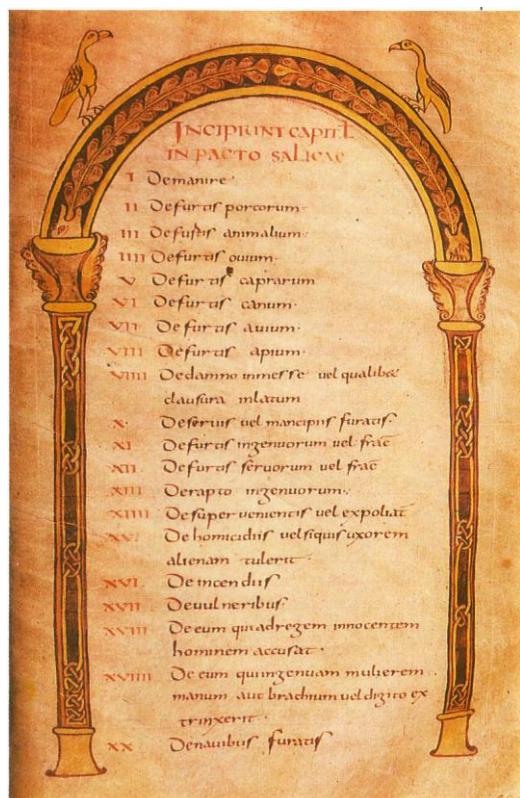 INCIPIUNT CAPITL
IN PACTO SALICAE
I De manire·
II De furtis porcorum·
III De furtis animalium·
IIII De furtis ovium·
V De furtis caprarum
VI De furtis canum·
VII De furtis avium·
VIII De furtis apium·
VIIII De damno inmesse vel qualibet
clausura inlatum
X· De servis vel mancipiis furatis·
XI De furtis ingenuorum vel frac̄
XII· De furtis servorum vel frac̄
XIII De rapto ingenuorum·
XIIII De super venientis vel expoliat
XV· De homicidiis vel siquis uxorem
alienam tulerit·
XVI· De incendiis
XVII De vulneribus·
XVIII De eum qui ad regem innocentem
hominem accusat·
XVIIII De eum qui ingenuam mulierem·
manum aut brachium vel digito ex
trinxerit·
XX De navibus furatis